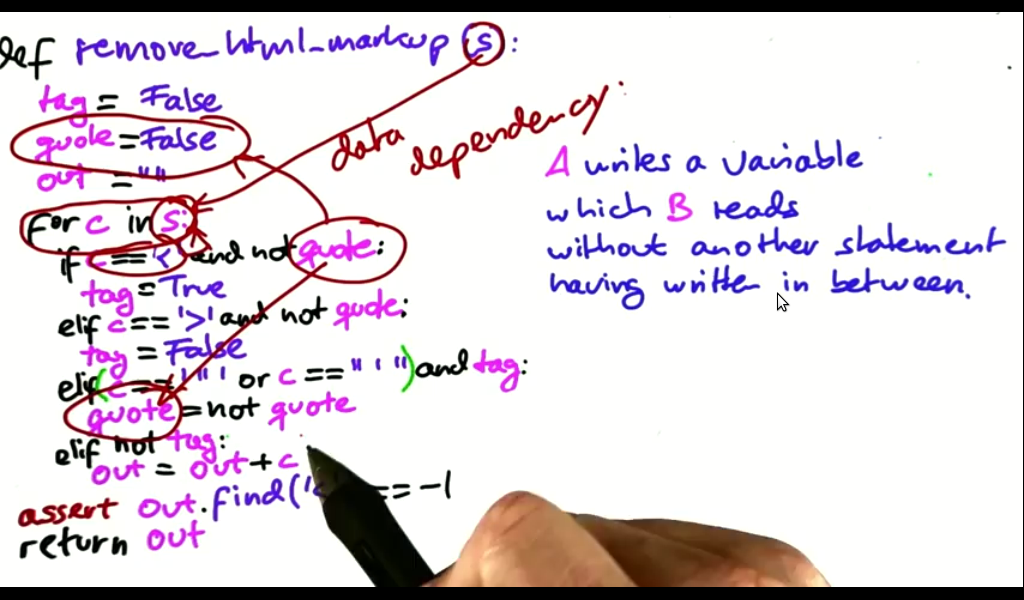 def remove_html_markup (s):
tag = False
quote = False
out = ""
for c in s:
if c == '<' and not quote:
tag = True
elif c == '>' and not quote:
tag = False
elif (c == '"' or c == "'") and tag:
quote = not quote
elif not tag:
out = out + c
assert out.find('< == -1
return out
data dependency:
A writes a variable
which B reads
without another statement
having written in between.